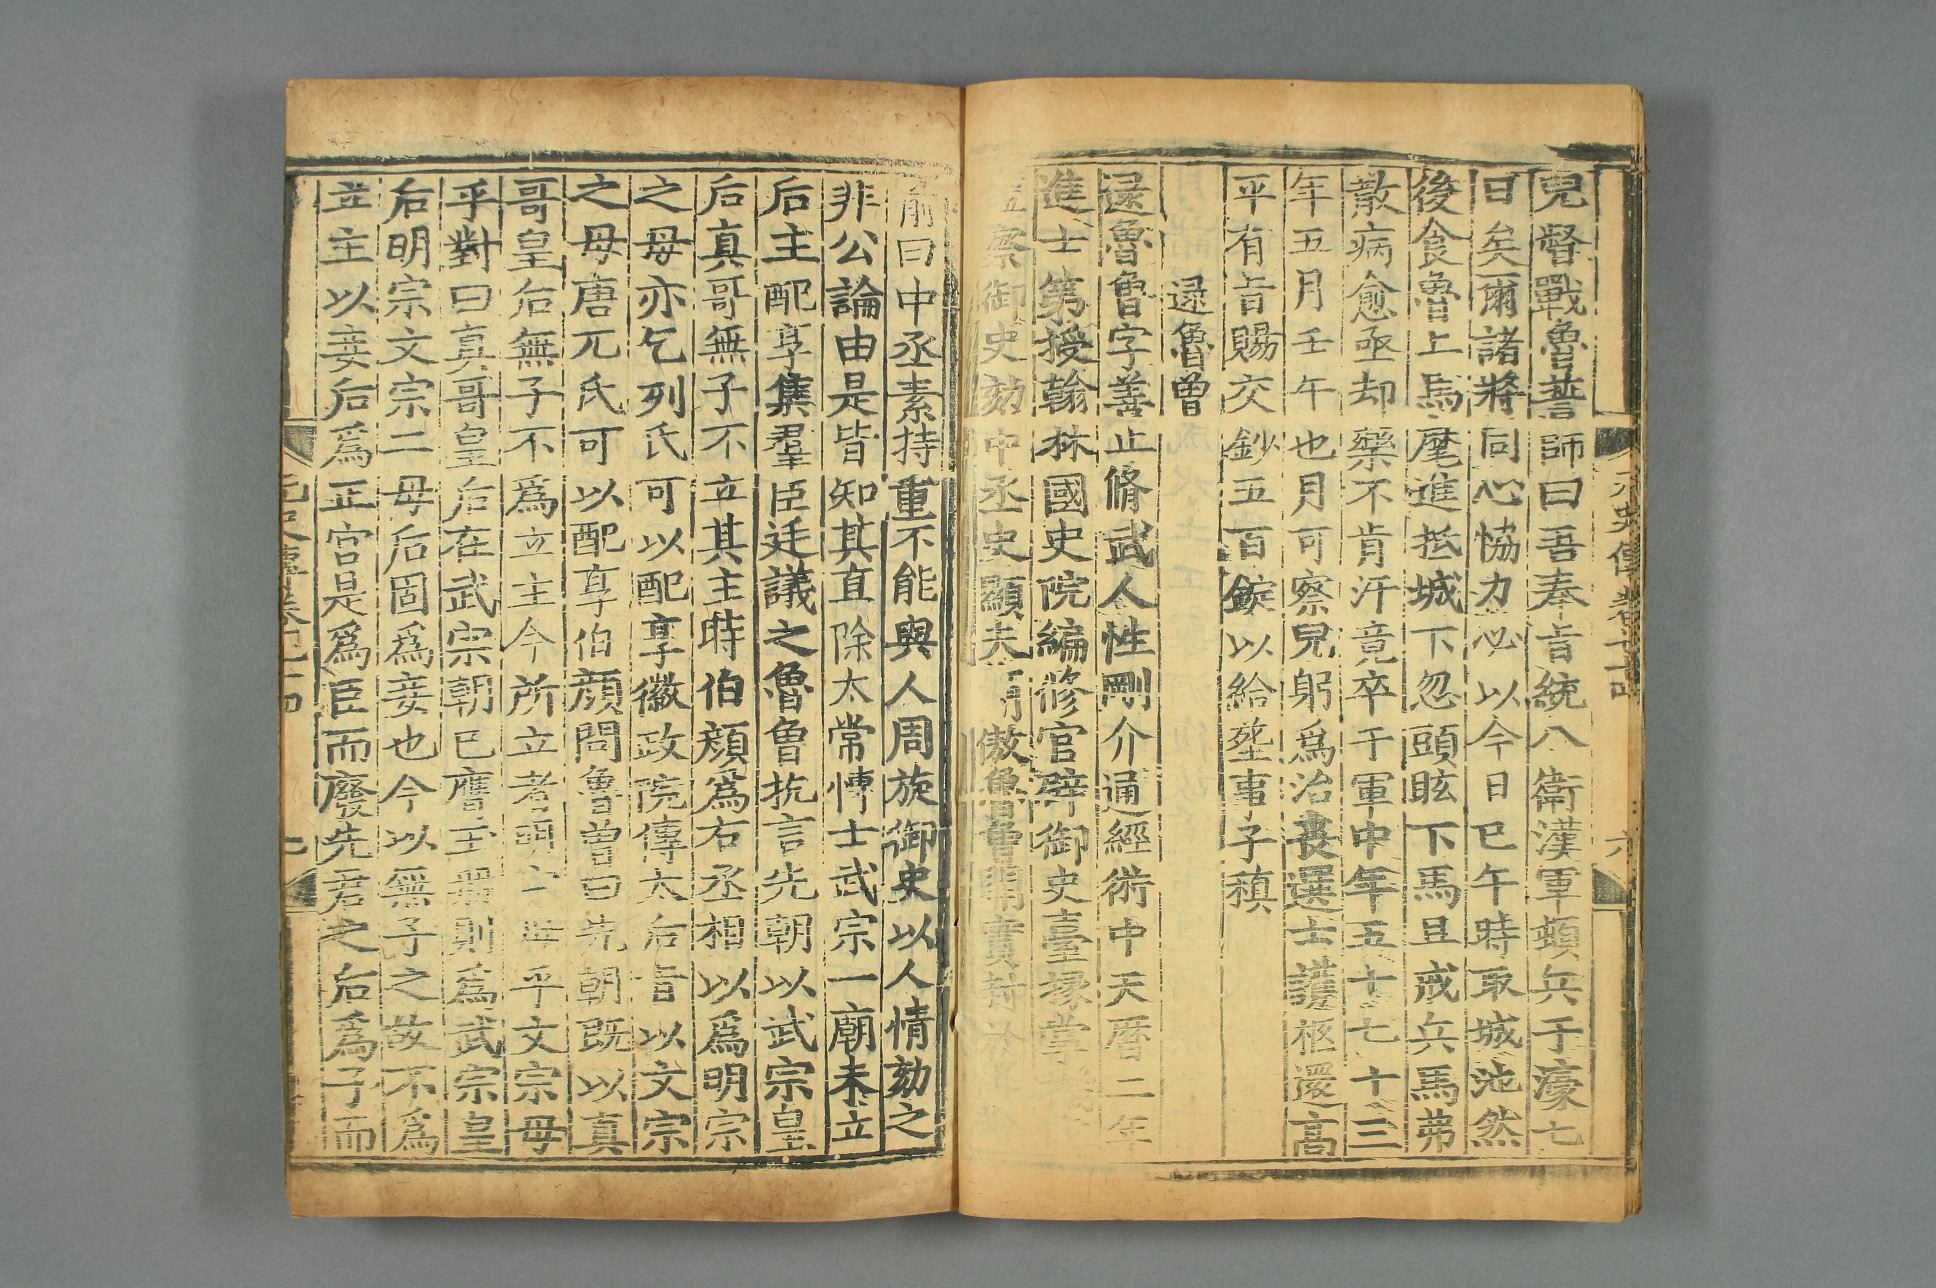 兒督戰魯誓師曰吾奉旨統八衛漢軍頓兵于濠七
日矣爾諸將同心恊力必以今日巳午時取城池然
後食魯上馬麾進抵城下忽頭眩下馬且戒兵馬弗
散病愈亟却藥不肯汗竟卒于軍中年五十七十三
年五月壬午也月可察兒躬爲治喪選士護柩還髙
平有旨賜交鈔五百錠以給塟事子蘋
逯魯曾
逯魯曾字善止脩武人性剛介通經術中天曆二年
進士第授翰林國史院編修官辟御史臺掾掌
察御史劾中丞史顯夫簡傲魯曾
俞曰中丞素持重不能與人周旋御史以人情劾之
非公論由是皆知其直除太常愽士武宗一廟未立
后主配享集羣臣廷議之魯曾抗言先朝以武宗皇
后真哥無子不立其主時伯顏爲右丞相以爲明宗
之母亦乞列氏可以配享徽政院傳太后旨以文宗
之母唐兀氏可以配享伯顏問魯曾曰先朝旣以真
哥皇后無子不爲立主今所立者明宗母乎文宗母
乎對曰真哥皇后在武宗朝已膺玉冊則爲武宗皇
后明宗文宗二母后固爲妾也今以無子之故不爲
立主以妾后爲正宮是爲臣而廢先君之后爲子而
元史傳卷七十四
六